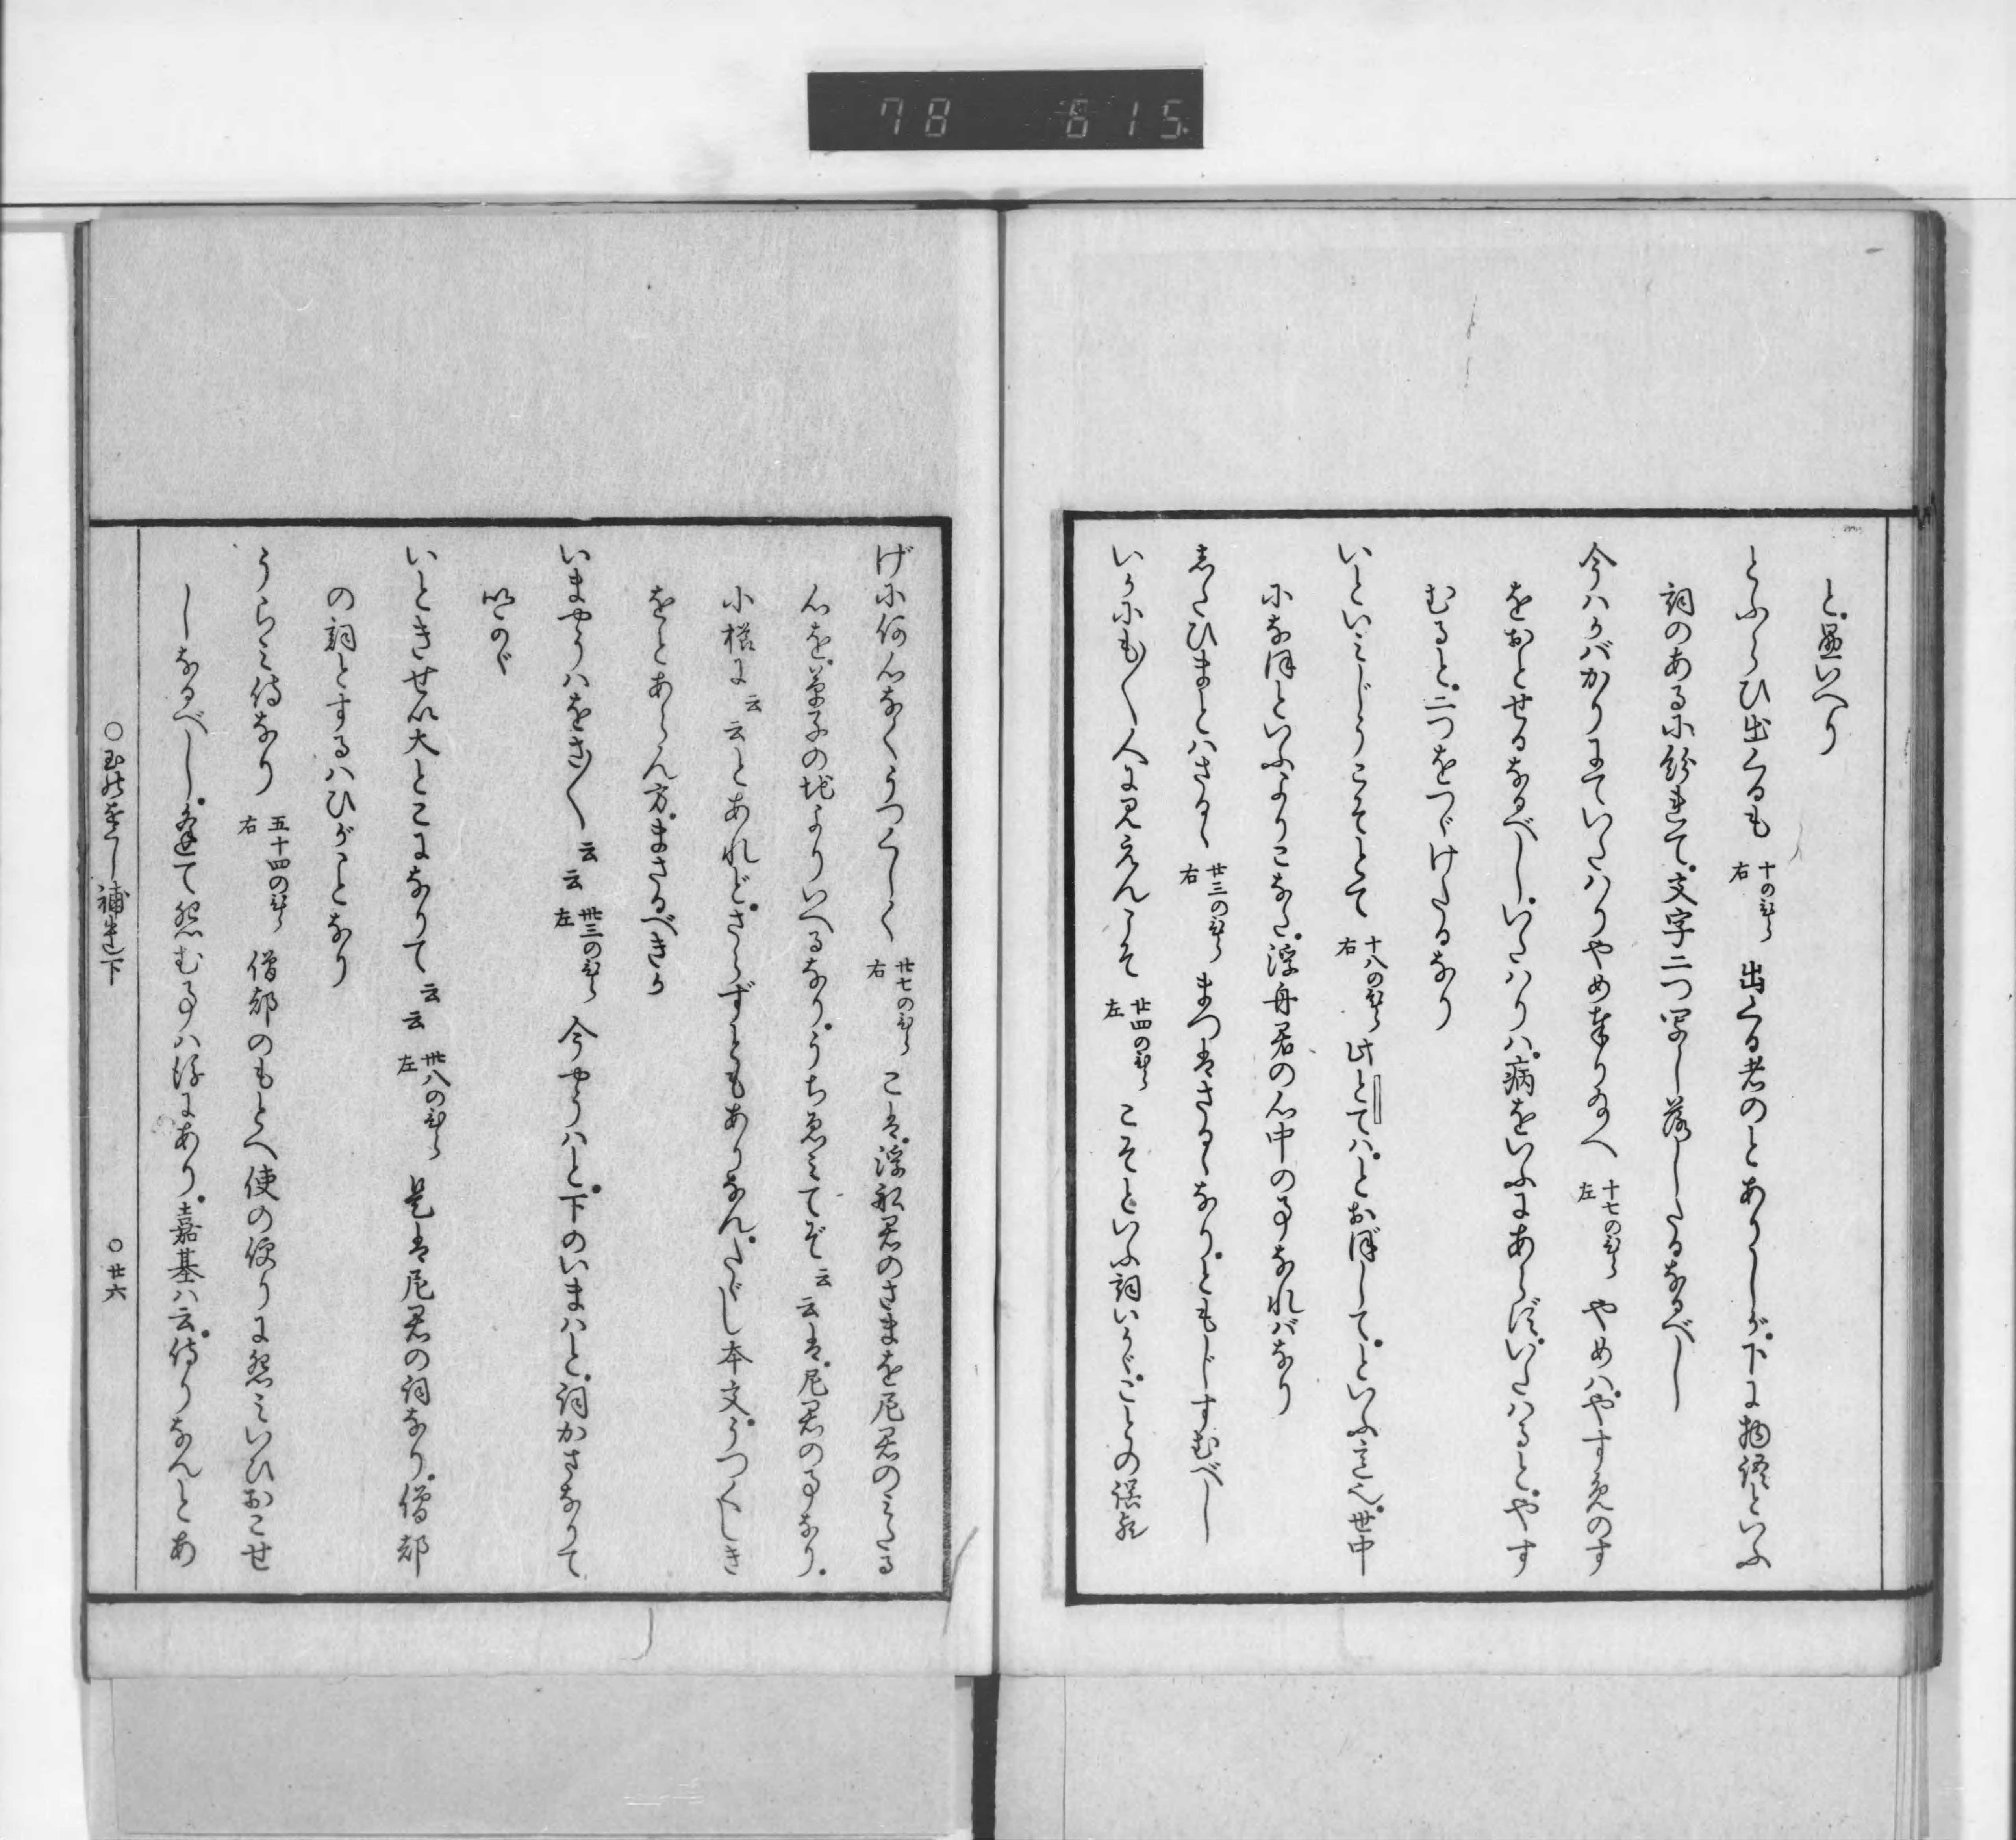 78 615
と墨いへり
とふらひ出くるも 十のひら右 出くる者のとありしが下に物語といふ
詞のある小紛れて文字二つ写し落したるなるべし
今ハかバかりにていたハりやめ奉り給へ 十七のひら左 やめハやす免のす
をおとせるなるべしいたハりハ病をいふにあらずいたハるとやす
むると二つをつゞけたるなり
いといみじうこそとて 十八のひら右 此とてハとおぼしてといふ意也世中
になほといふよりこなた浮舟君の心中の事なれバなり
まらうとハさるハ 廿三のひら右 まつはさるハなりともじすむべし
いかにも〱人に見えんこそ 廿四のひら左 こそといふ詞いかゞことの誤歟
げに何心なくうつくしく 廿七のひら右 こは浮舩君のさまを尼君のみたる
心を草子の地よりいへるなりうちゑみてぞ云云は尼君の事なり
小櫛に云云とあれどさらずともありなんたゞし本文うつくしき
をとあらん方まさるべきか
いまやうハをさ〱云云 卅三のひら左 今やうハと下のいまハと詞かさなりて
いときせい大とこになりて云云 卅八のひら左 是は尼君の詞なり僧都
の詞とするハひがことなり
うらミ侍なり 五十四のひら右 僧都のもとへ使の便りに怨ミいひおこせ
しなるべし逢て怨むる事ハ後にあり嘉基ハ云侍りなんとあ
○玉の小くし補遺下 ○廿六